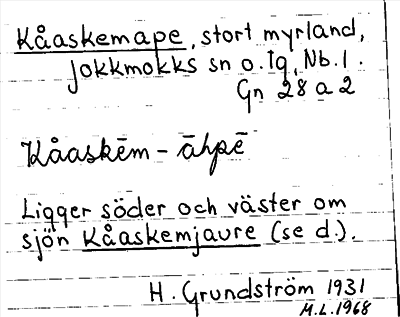 Kåaskemape, stort myrland,
Jokkmokks sn o. tg, Nb. l.
Gn 28 a 2
Kåaskēm - āhpē
Ligger söder och väster om
sjön Kåaskemjaure (se d.).
H. Grundström 1931
M.L. 1968